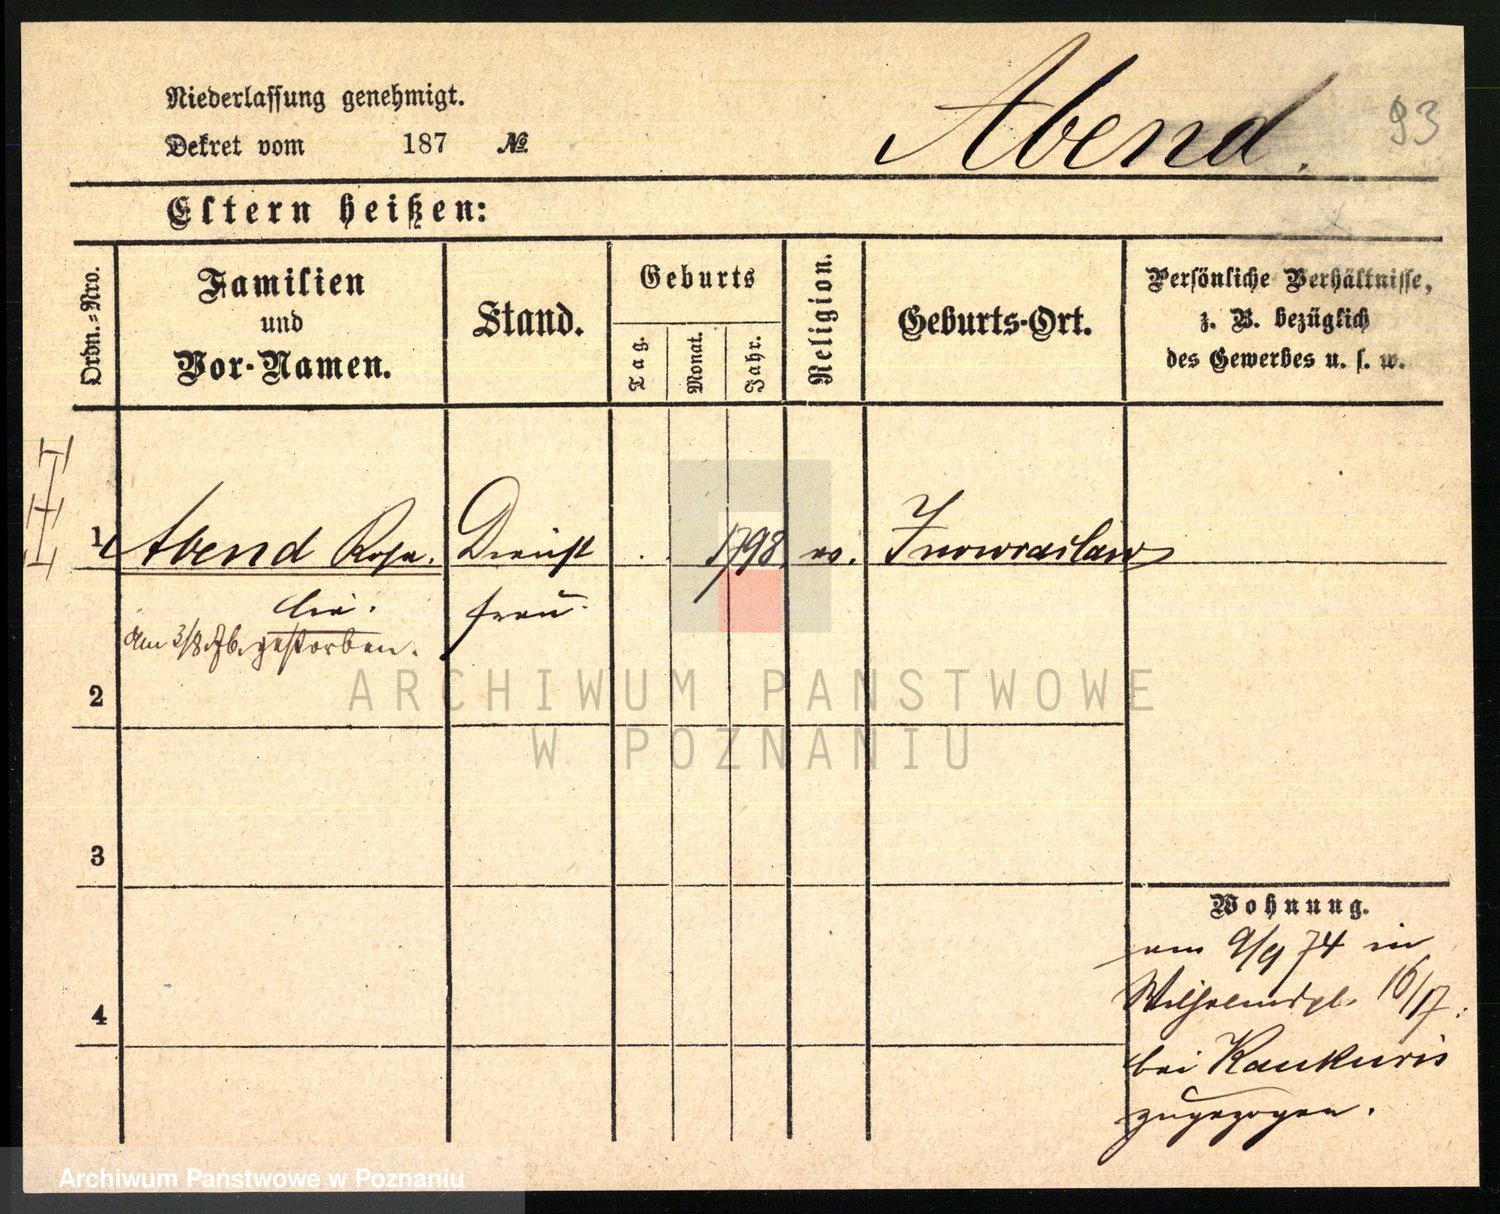 Abend.
93
Niederlassung genehmigt.
Dekret vom 187 №
Eltern heißen:
Ordn.-Nro.
Familien
und
Vor-Namen.
Stand.
Geburts
Tag.
Monat.
Jahr.
Religion.
Geburts-Ort.
Persönliche Verhältnisse,
z. B. bezüglich
des Gewerbes u. s. w.
1 Abend Rosa. Dienst . . 1798 ev. Inowraclaw
lie. frau.
am 3/8. gestorben.
2
3
4
Wohnung.
am 9/9 74 in
Wilhelmspl. 16/17.
bei Kankuris
zugezogen.
ARCHIWUM PANSTWOWE
W POZNANIU
Archiwum Państwowe w Poznaniu